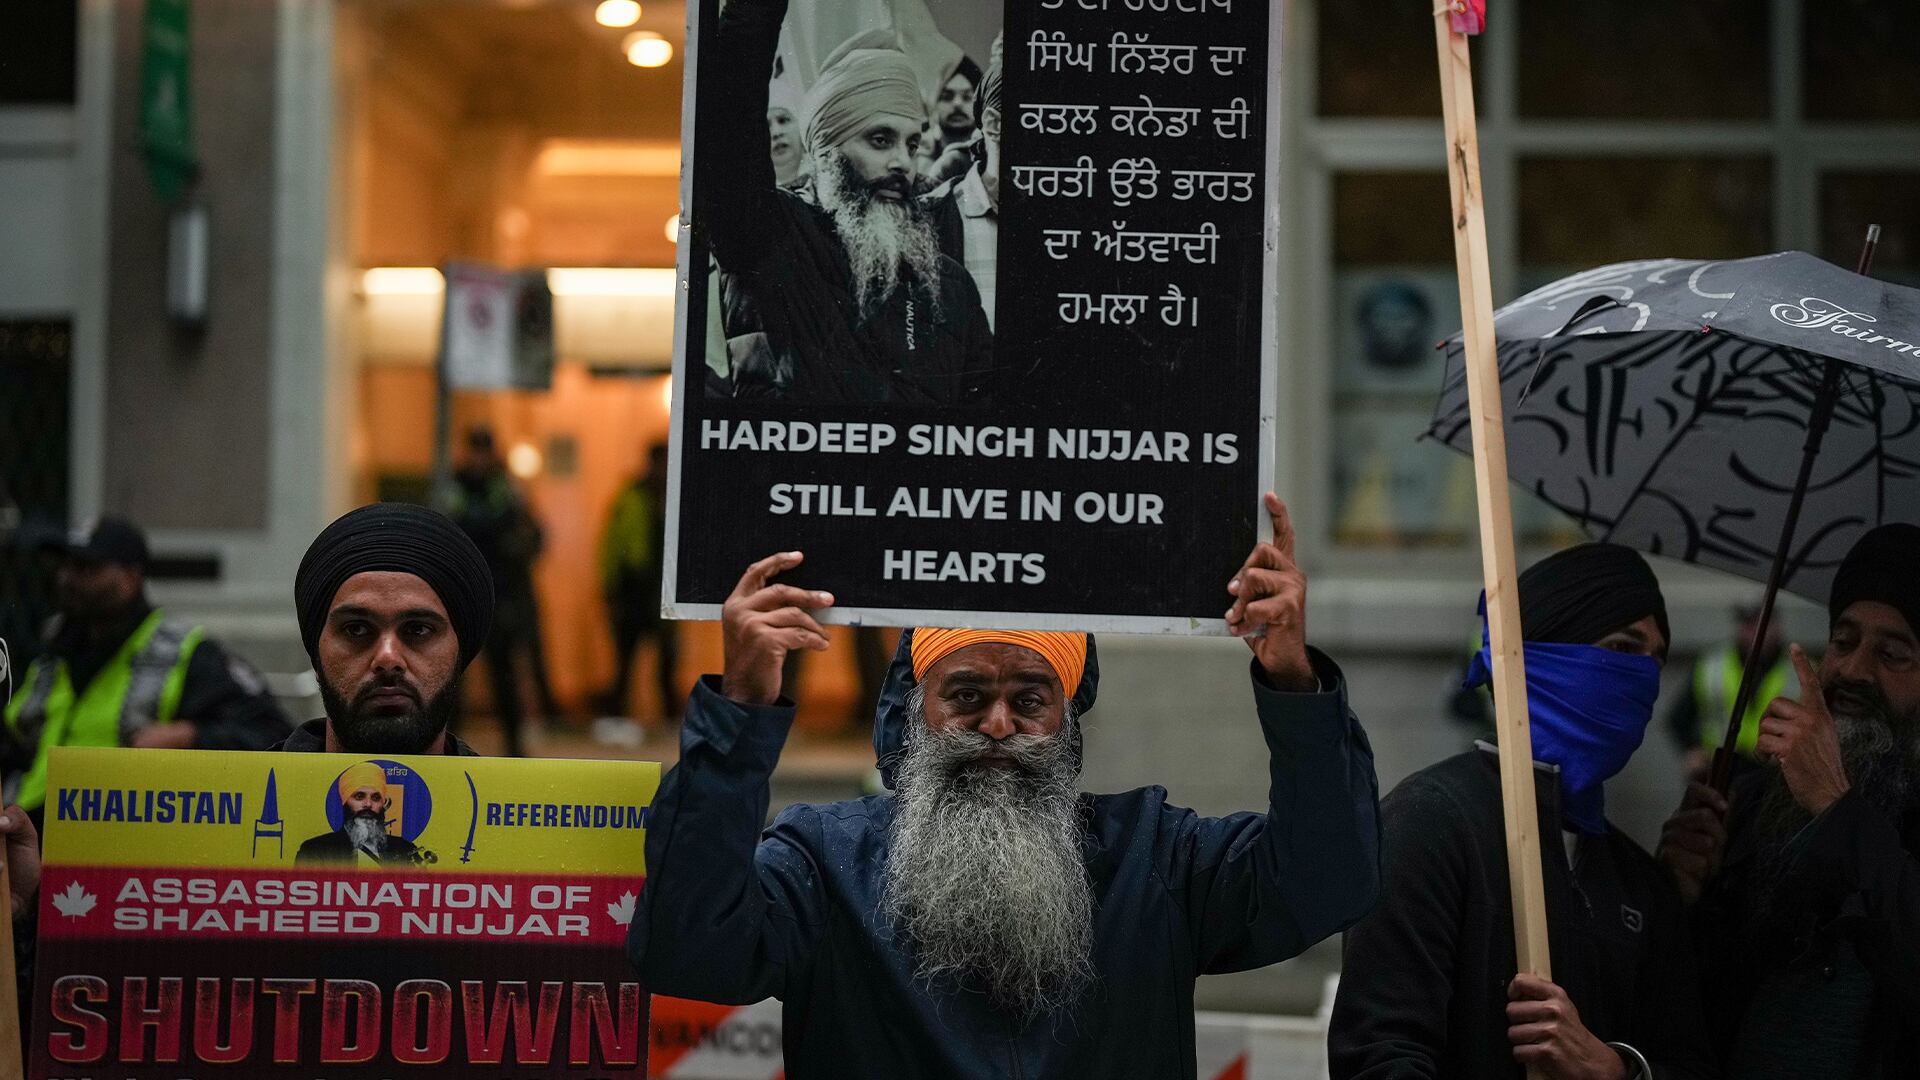 ਸਿੰਘ ਨਿੱਝਰ ਦਾ
ਕਤਲ ਕਨੇਡਾ ਦੀ
ਧਰਤੀ ਉੱਤੇ ਭਾਰਤ
ਦਾ ਅੱਤਵਾਦੀ
ਹਮਲਾ ਹੈ।
NAUTICA
HARDEEP SINGH NIJJAR IS
STILL ALIVE IN OUR
HEARTS
KHALISTAN
REFERENDUM
ASSASSINATION OF
SHAHEED NIJJAR
SHUTDOWN